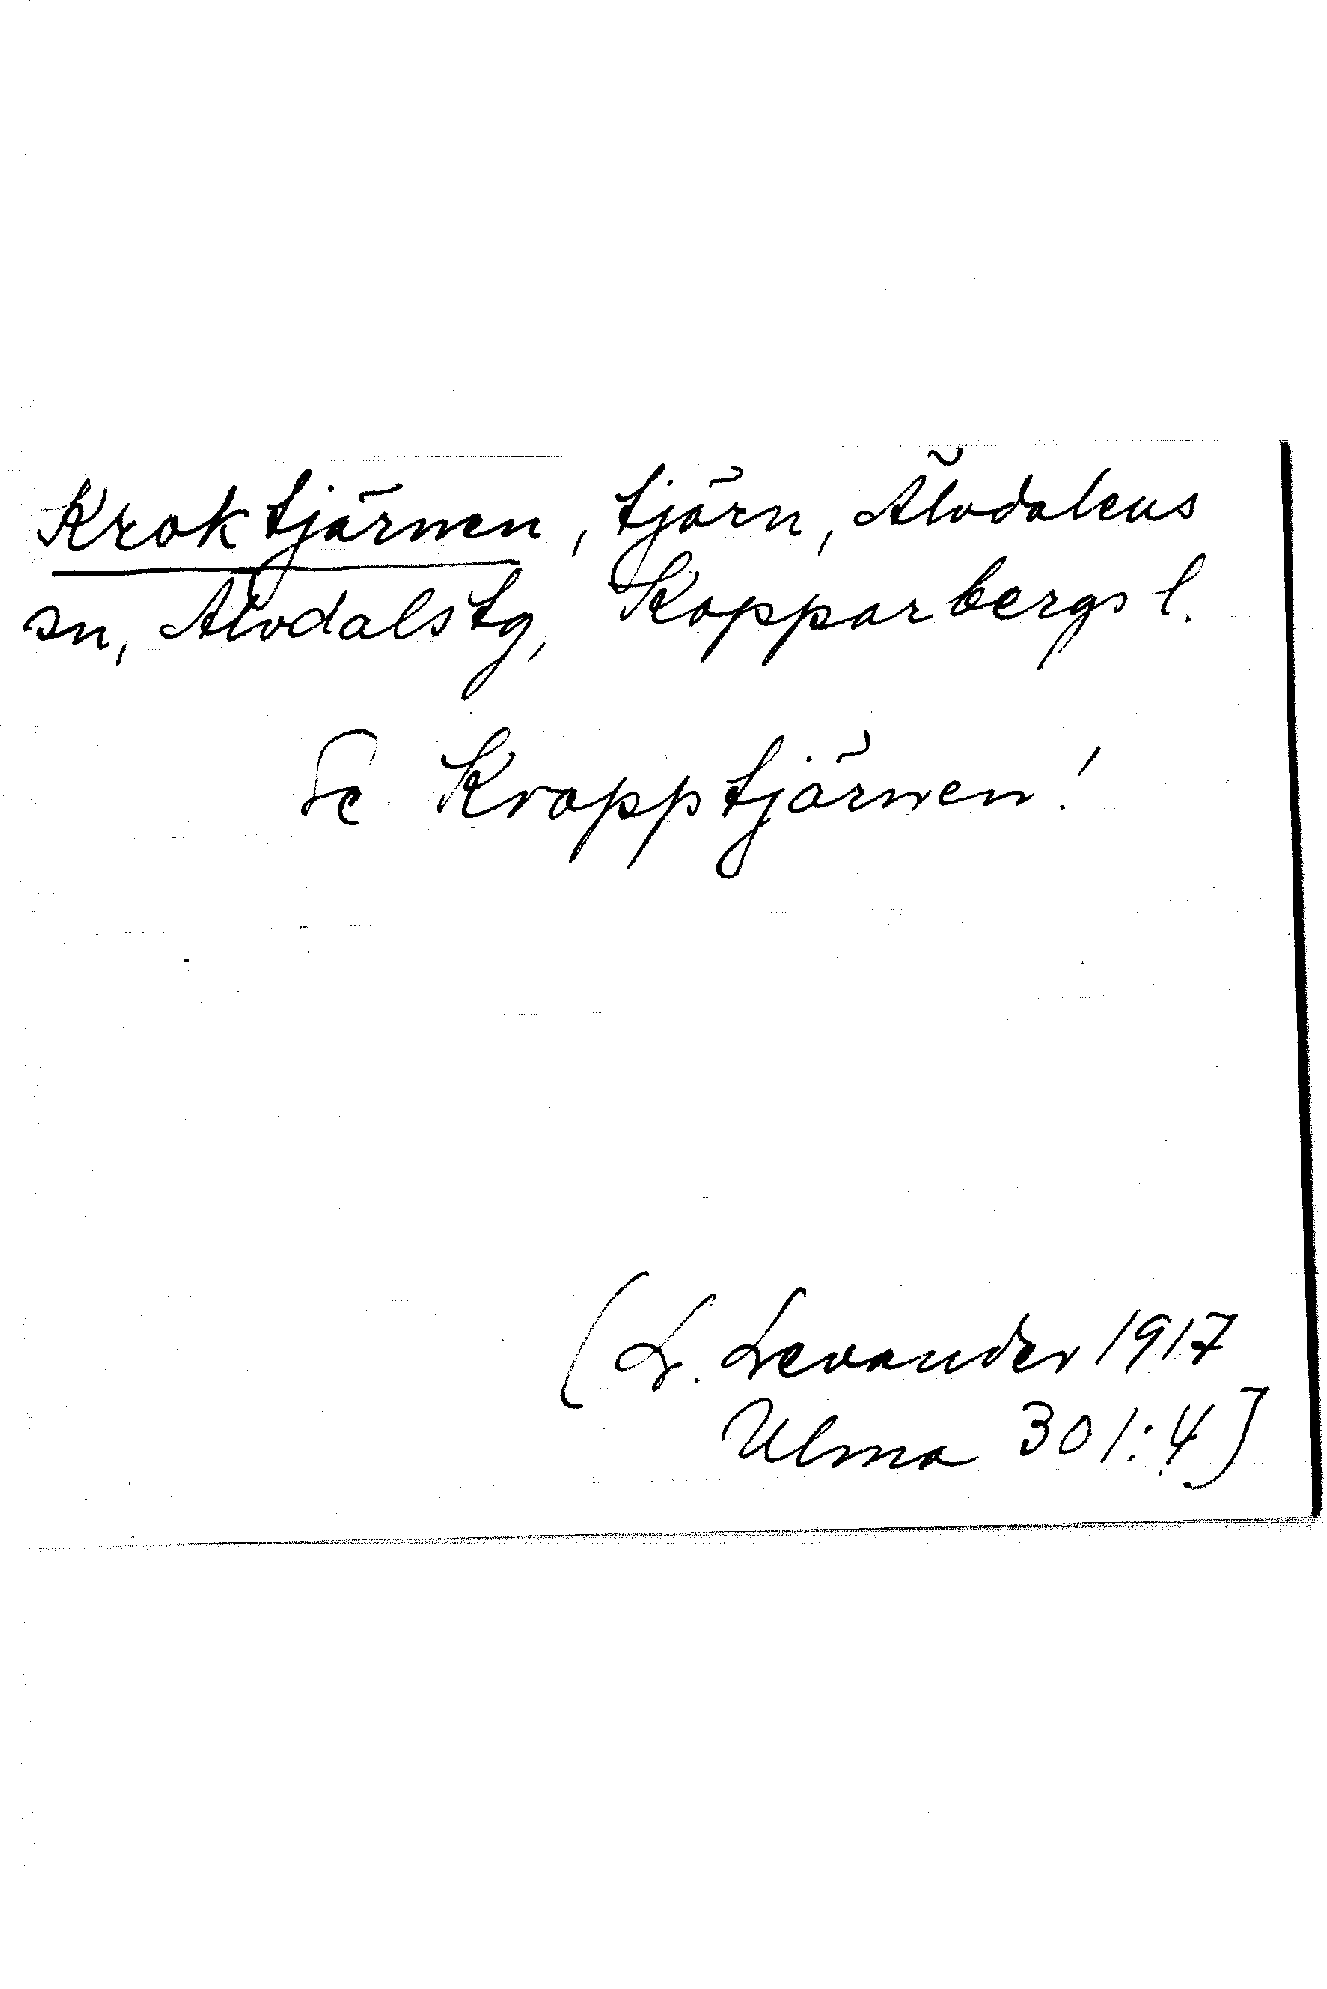 Kroktjärnen, tjärn, Älvdalens
sn, Älvdalstg, Kopparbergs l.
Se Kropptjärnen!
(L. Levander 1917
Ulma 301:4)